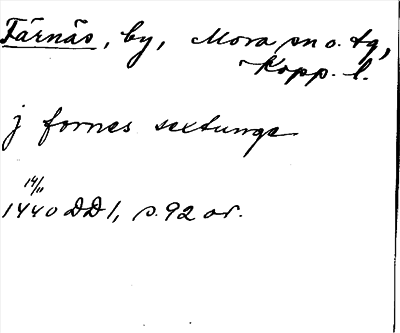 Färnäs, by, Mora sn o. tg,
Kopp. l.
j fornes sextunge
14/11
1440 DD 1, s. 92 or.